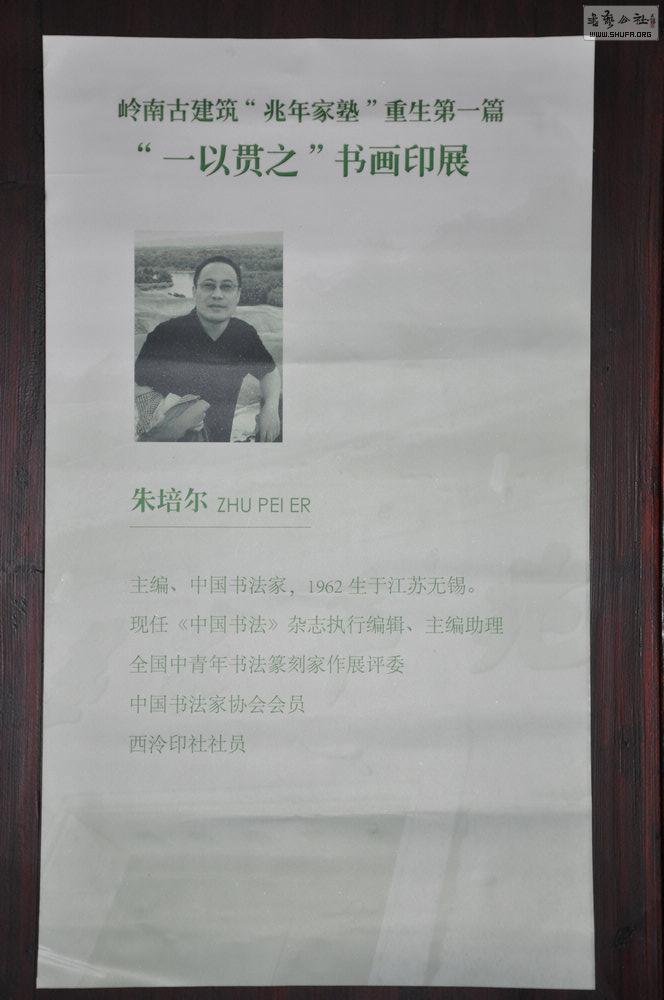 WWW.SHUFA.ORG
岭南古建筑“兆年家塾”重生第一篇
“一以贯之”书画印展
朱培尔 ZHU PEI ER
主编、中国书法家，1962 生于江苏无锡。
现任《中国书法》杂志执行编辑、主编助理
全国中青年书法篆刻家作展评委
中国书法家协会会员
西泠印社社员